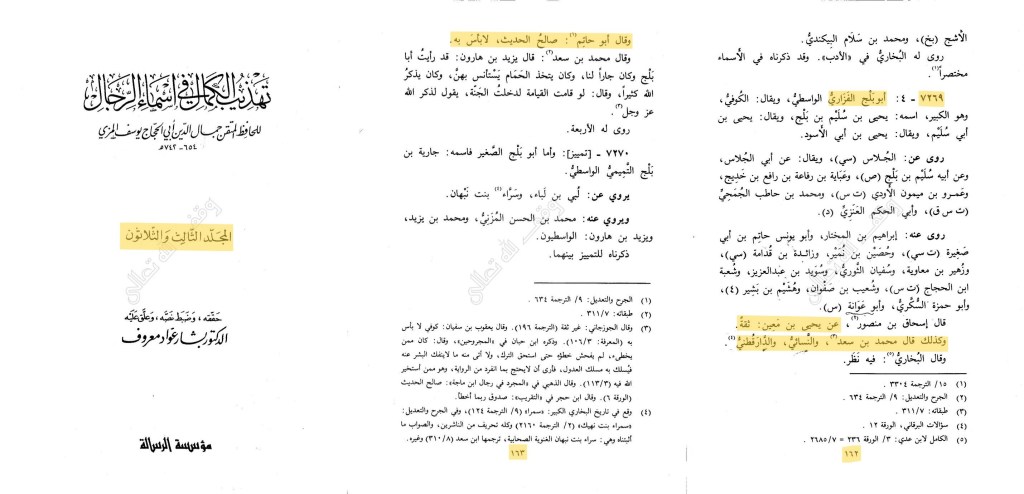 تهذيب الكمال في أسماء الرجال
للحافظ المتقن جمال الدين أبي الحجاج يوسف المزي
٦٥٤ - ٧٤٢هـ
المجلد الثالث والثلاثون
حققه، وضبط نصه، وعلق عليه
الدكتور بشار عواد معروف
مؤسسة الرسالة
الأشج (بخ)، ومحمد بن سَلَام البِيكنديُّ.
روى له البُخاريُّ في «الأدب». وقد ذكرناه في الأسماء
مختصراً(١).
٧٢٦٩ - ٤: أبو بَلْج الفَزَاريُّ الواسطيُّ، ويقال: الكُوفيُّ،
وهو الكبير، اسمه: يحيى بن سُلَيْم بن بَلْج، ويقال: يحيى بن
أبي سُلَيم، ويقال: يحيى بن أبي الأسود.
روى عن: الجُلاس (سي)، ويقال: عن أبي الجُلاس،
وعن أبيه سُلَيْم بن بَلْج (ص)، وعَبَاية بن رفاعة بن رافع بن خَدِيج،
وعَمرو بن ميمون الأَوْدي (ت س)، ومحمد بن حاطب الجُمَحيِّ
(ت س ق)، وأبي الحكم العَنَزيِّ (د).
روى عنه: إبراهيم بن المختار، وأبو يونس حاتِم بن أبي
صَغِيرة (ت سي)، وحُصَيْن بن نُمَيْر، وزائدة بن قُدامة (سي)،
وزُهير بن معاوية، وسُفيان الثَّوريُّ، وسُوَيد بن عبدالعزيز، وشُعبة
ابن الحجاج (ت س)، وشُعيب بن صَفْوان، وهُشَيْم بن بَشير (٤)،
وأبو حمزة السُّكَّريُّ، وأبو عَوَانة (س).
قال إسحاق بن منصور(٢)، عن يحيى بن مَعِين: ثقةٌ.
وكذلك قال محمد بن سعد(٣)، والنَّسائيُّ، والدَّارقُطنيُّ(٤).
وقال البُخاريُّ(٥): فيه نَظَر.
(١) ١٥/ الترجمة ٣٣٠٤ .
(٢) الجرح والتعديل: ٩/ الترجمة ٦٣٤ .
(٣) طبقاته: ٣١١/٧ .
(٤) سؤالات البرقاني، الورقة ١٢ .
(٥) الكامل لابن عدي: ٣/ الورقة ٢٣٦ = ٢٦٨٥/٧ .
١٦٢
وقال أبو حاتِم(١): صالحُ الحديث، لابأسَ به.
وقال محمد بن سعد(٢): قال يزيد بن هارون: قد رأيتُ أبا
بَلْج وكان جاراً لنا، وكان يتخذ الحَمَام يَسْتأنس بهنَّ، وكان يذكرُ
الله كثيراً، وقال: لو قامت القيامة لدخلتُ الجَنَّة، يقول لذكر الله
عز وجل(٣).
روى له الأربعة.
٧٢٧٠ - [تمييز]: وأما أبو بَلْج الصَّغير فاسمه: جارية بن
بَلْج التَّميميُّ الواسطيُّ.
يروي عن: لُبي بن لَباء، وسَرَّاء(٤) بنت نَبْهان.
ويروي عنه: محمد بن الحسن المُزَنيُّ، ومحمد بن يزيد،
ويزيد بن هارون: الواسطيون.
ذكرناه للتمييز بينهما.
(١) الجرح والتعديل: ٩/ الترجمة ٦٣٤ .
(٢) طبقاته: ٣١١/٧ .
(٣) وقال الجوزجاني: غير ثقة (الترجمة ١٩٦). وقال يعقوب بن سفيان: كوفي لا بأس
به (المعرفة: ١٠٦/٣). وذكره ابن حبان في «المجروحين»، وقال: كان ممن
يخطىء، لم يفحش خطؤه حتى استحق الترك، ولا أتى منه ما لاينفك البشر عنه
فيُسلك به مسلك العدول، فأرى أن لايحتج بما انفرد من الرواية، وهو ممن أستخير
الله فيه (١١٣/٣). وقال الذهبي في «المجرد في رجال ابن ماجة»: صالح الحديث
(الورقة ٦). وقال ابن حجر في «التقريب»: صدوق ربما أخطأ.
(٤) وقع في تاريخ البخاري الكبير: «سمراء (٩/ الترجمة ١٢٤)، وفي الجرح والتعديل:
«سمراء بنت نهيك» (٢/ الترجمة ٢١٦٠) وكله تحريف من الناشرين، والصواب ما
أثبتناه وهي: سراء بنت نبهان الغنوية الصحابية، ترجمها ابن سعد (٣١٠/٨) وغيره.
١٦٣
وقف لله تعالى
وقف لله تعالى
وقف لله تعالى